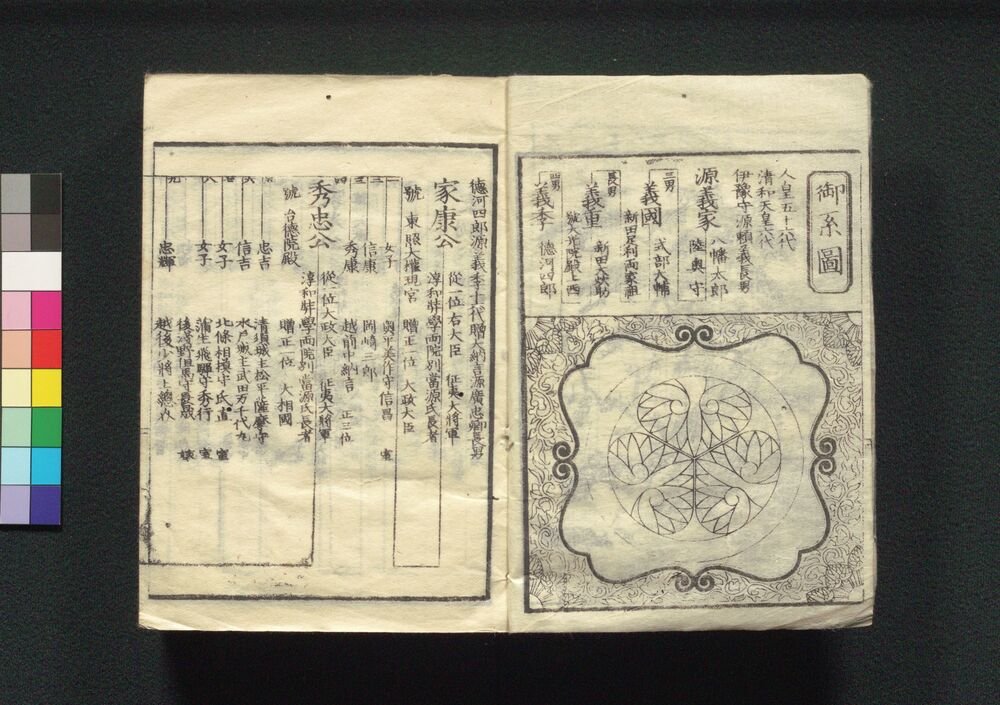 御系圖
人皇五十六代
清和天皇六代
伊豫守源頼義長男
源義家
八幡太郎
陸奥守
三男
義國
式部大輔
新田足利両家祖
長男
義重
新田大炊助
號大光院殿上西
四男
義季
德河四郎
德河四郎源義季十二代贈大納言源廣忠卿長男
家康公
從一位右大臣 征夷大将軍
淳和弉學両院別當源氏長者
號 東照大權現宮 贈正一位 大政大臣
女子 奥平美作守信昌 室
信康 岡崎三郎
秀康 越前中納言 正三位
秀忠公
從一位大政大臣 征夷大将軍
淳和弉學両院別當源氏長者
號 台德院殿 贈正一位 大相國
忠吉 清須城主松平薩摩守
信吉 水戸城主武田万千代丸
女子 北條相模守氏直 室
女子 蒲生飛騨守秀行 室
後浅野但馬守長晟 嫁
忠輝 越後少將上總介